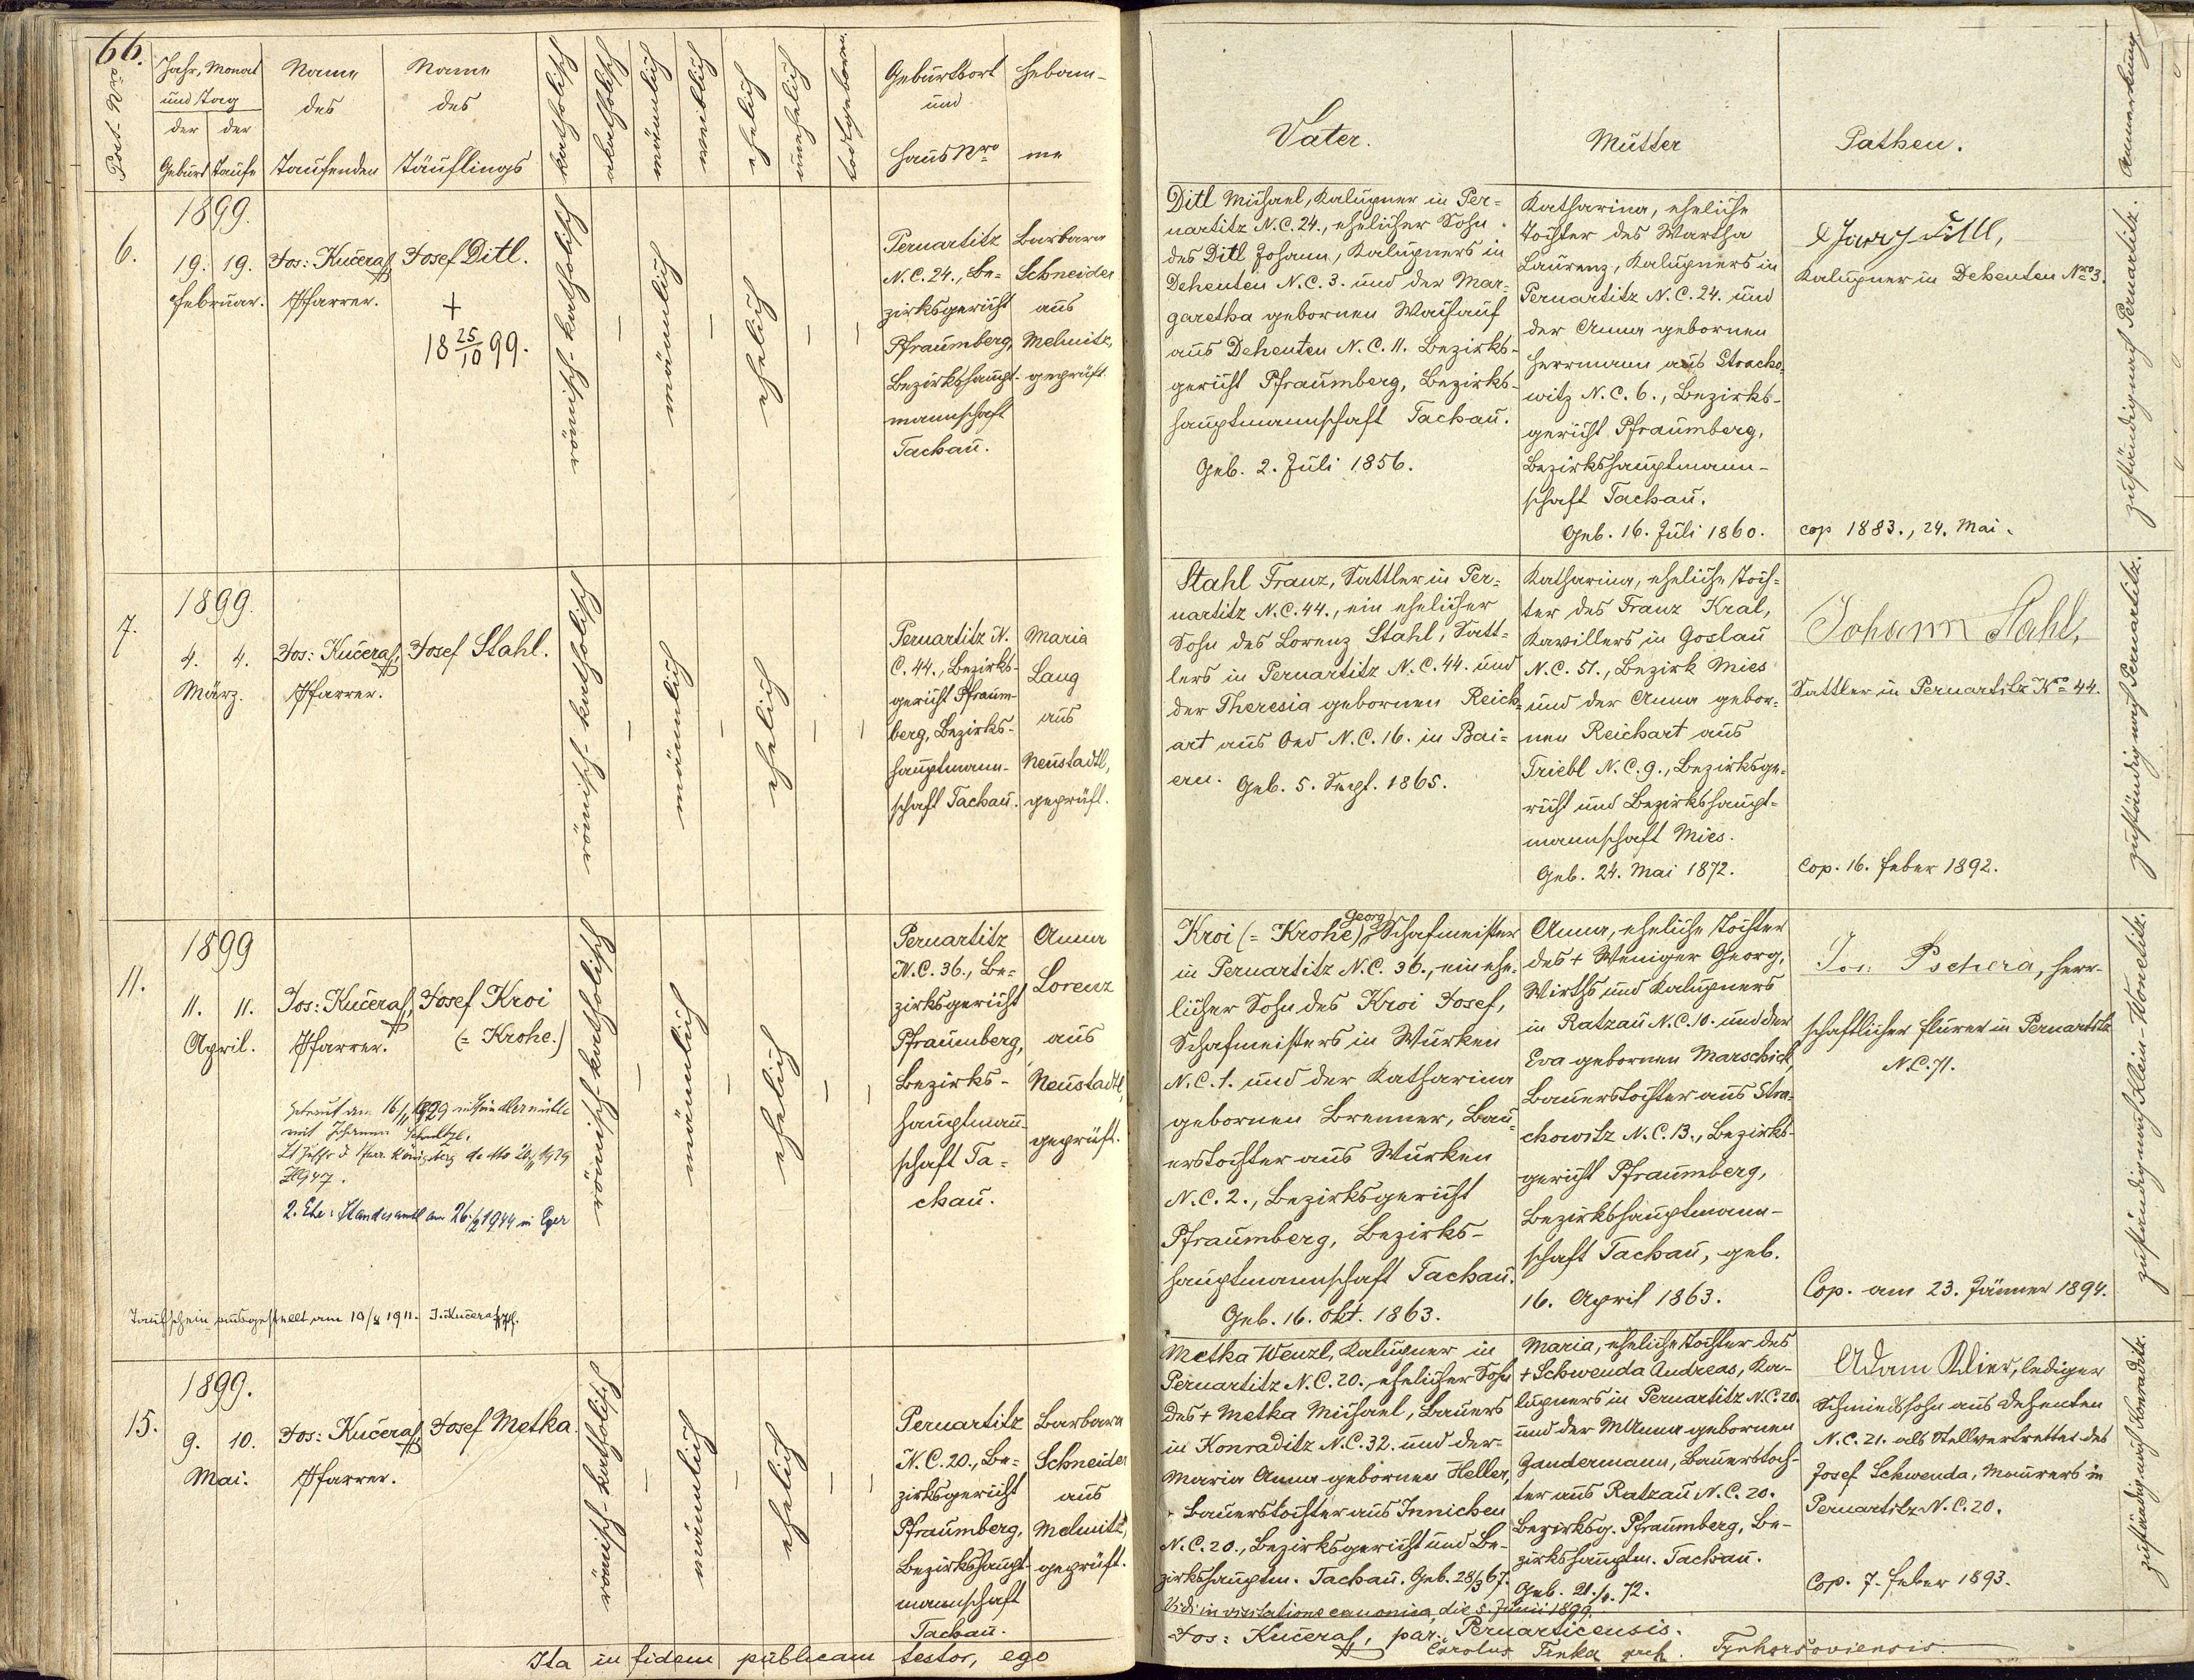 66.
Post. Nro
Jahr, Monat
und Tag
der
der
Geburt
Taufe
Name
des
Taufenden
Name
des
Täuflings
katholisch
akatholisch
männlich
weiblich
ehelich
unehelich
todtgeboren
Geburtsort
und
Haus Nro
Hebam-
me
Vater.
Mutter
Pathen.
Anmerkung
6.
1899.
19. 19.
Februar.
Jos: Kučera,
Pfarrer.
Josef Ditl.
+
18 25/10 99.
römisch-katholisch
–
männlich
–
ehelich
–
–
Pernartitz
N.C. 24., Be-
zirksgericht
Pfraumberg,
Bezirkshaupt-
mannschaft
Tachau.
Barbara
Schneider
aus
Melnitz,
geprüft.
Ditl Michael, Kalupner in Per-
nartitz N.C. 24., ehelicher Sohn
des Ditl Johann, Kalupners in
Dehenten N.C. 3. und der Mar-
garetha gebornen
aus Dehenten N.C. 11. Bezirks-
gericht Pfraumberg, Bezirks-
hauptmannschaft Tachau.
Geb. 2. Juli 1856.
Katharina, eheliche
Tochter des Wartha
Laurenz, Kalupners in
Pernartitz N.C. 24. und
der Anna gebornen
Herrmann aus Stracho-
witz N.C. 6., Bezirks-
gericht Pfraumberg,
Bezirkshauptmann-
schaft Tachau.
Geb. 16. Juli 1860.
Kalupner in Dehenten Nro 3.
cop 1883., 24. Mai.
zuständig nach Pernartitz.
7.
1899.
4. 4.
März.
Jos: Kučera,
Pfarrer.
Josef Stahl.
römisch-katholisch
–
männlich
–
ehelich
–
–
Pernartitz N.
C. 44., Bezirks-
gericht Pfraum-
berg, Bezirks-
hauptmann-
schaft Tachau.
Maria
Lang
aus
Neustadtl,
geprüft.
Stahl Franz, Sattler in Per-
nartitz N.C. 44., ein ehelicher
Sohn des Lorenz Stahl, Satt-
lers in Pernartitz N.C. 44. und
der Theresia gebornen Reich-
art aus Oed N.C. 16. in Bai-
ern. Geb. 5. Sept. 1865.
Katharina, eheliche Toch-
ter des Franz Kral,
Kavillers in Goslau
N.C. 51., Bezirk Mies
und der Anna gebor-
nen Reichart aus
Triebl N.C. 9., Bezirksge-
richt und Bezirkshaupt-
mannschaft Mies.
Geb. 24. Mai 1872.
Johann Stahl,
Sattler in Pernartitz Nro 44.
Cop. 16. Feber 1892.
zuständig nach Pernartitz.
11.
1899
11. 11.
April.
Jos: Kučera,
Pfarrer.
Josef Kroi
(= Krohe.)
am 16/11 1929
mit Johanna
Königsberg
2. Ehe: Standesamtl am 26./2 1944 in Eger
Taufschein ausgestellt am 10/8 1911. J. Kučera Pf.
römisch-katholisch
–
männlich
–
ehelich
–
–
Pernartitz
N.C. 36., Be-
zirksgericht
Pfraumberg,
Bezirks-
hauptman-
schaft Ta-
chau.
Anna
Lorenz
aus
Neustadtl,
geprüft.
Kroi (= Krohe) Georg, Schafmeister
in Pernartitz N.C. 36., ein ehe-
licher Sohn des Kroi Josef,
Schafmeisters in Wurken
N.C. 1. und der Katharina
gebornen Brenner, Bau-
erstochter aus Wurken
N.C. 2., Bezirksgericht
Pfraumberg, Bezirks-
hauptmannschaft Tachau.
Geb. 16. Okt. 1863.
Anna, eheliche Tochter
des + Weniger Georg,
Wirths und Kalupners
in Ratzau N.C. 10. und der
Eva gebornen Marschick,
Bauerstochter aus Stra-
chowitz N.C. 13., Bezirks-
gericht Pfraumberg,
Bezirkshauptmann-
schaft Tachau, geb.
16. April 1863.
Jos: Pschera, herr-
schaftlicher Flurer in Pernartitz
N.C. 71.
Cop. am 23. Jänner 1894.
zuständig nach Klein-Wonetitz.
15.
1899.
9. 10.
Mai.
Jos: Kučera,
Pfarrer.
Josef Metka.
römisch-katholisch
–
männlich
–
ehelich
–
–
Pernartitz
N.C. 20., Be-
zirksgericht
Pfraumberg,
Bezirkshaupt-
mannschaft
Tachau.
Barbara
Schneider
aus
Melnitz,
geprüft.
Metka Wenzl, Kalupner in
Pernartitz N.C. 20. ehelicher Sohn
des + Metka Michael, Bauers
in Konraditz N.C. 32. und der
Maria Anna gebornen Heller,
Bauerstochter aus Innichen
N.C. 20., Bezirksgericht und Be-
zirkshauptm. Tachau. Geb. 28/3 67.
Maria, eheliche Tochter des
+ Schwenda Andreas, Ka-
lupners in Pernartitz N.C. 20.
und der M Anna gebornen
Gandermann, Bauerstoch-
ter aus Ratzau N.C. 20.
Bezirksg. Pfraumberg, Be-
zirkshauptm. Tachau.
Adam Klier, lediger
Schmiedssohn aus Dehenten
N.C. 21. als Stellvertretter des
Josef Schwenda, Maurers in
Pernartitz N.C. 20.
Cop. 7. Feber 1893.
zuständig nach Konraditz.
Vidi in visitatione canonica, die 5. Junii 1899.
Ita in fidem publicam testor, ego
Jos: Kučera, par. Pernarticensis.
Carolus